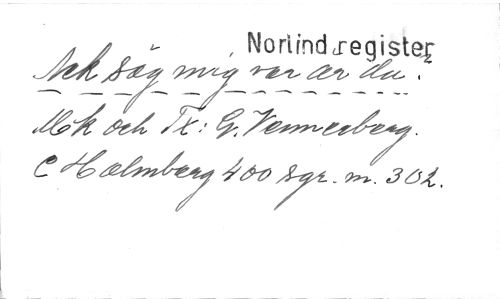 Norlindregister
Ack säg mig var är du?
Mk och Tx: G. Wennerberg.
C Holmberg 400 sgr. m. 302.